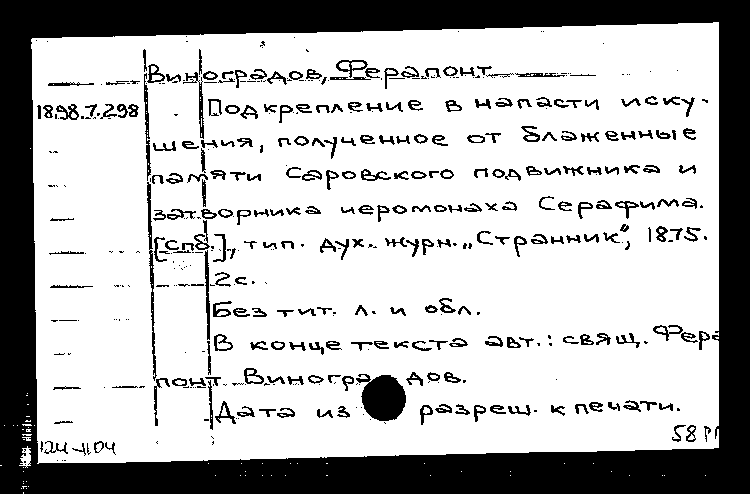 Виноградов, Ферапонт
18.98.7.298 Подкрепление в напасти иску-
шения, полученное от блаженные
памяти Саровского подвижника и
затворника иеромонаха Серафима.
[Спб.], тип. дух. журн. „Странник“, 1875.
2с.
Без тит. л. и обл.
В конце текста авт.: свящ. Фера
понт Виноградов.
Дата из разреш. к печати.
58